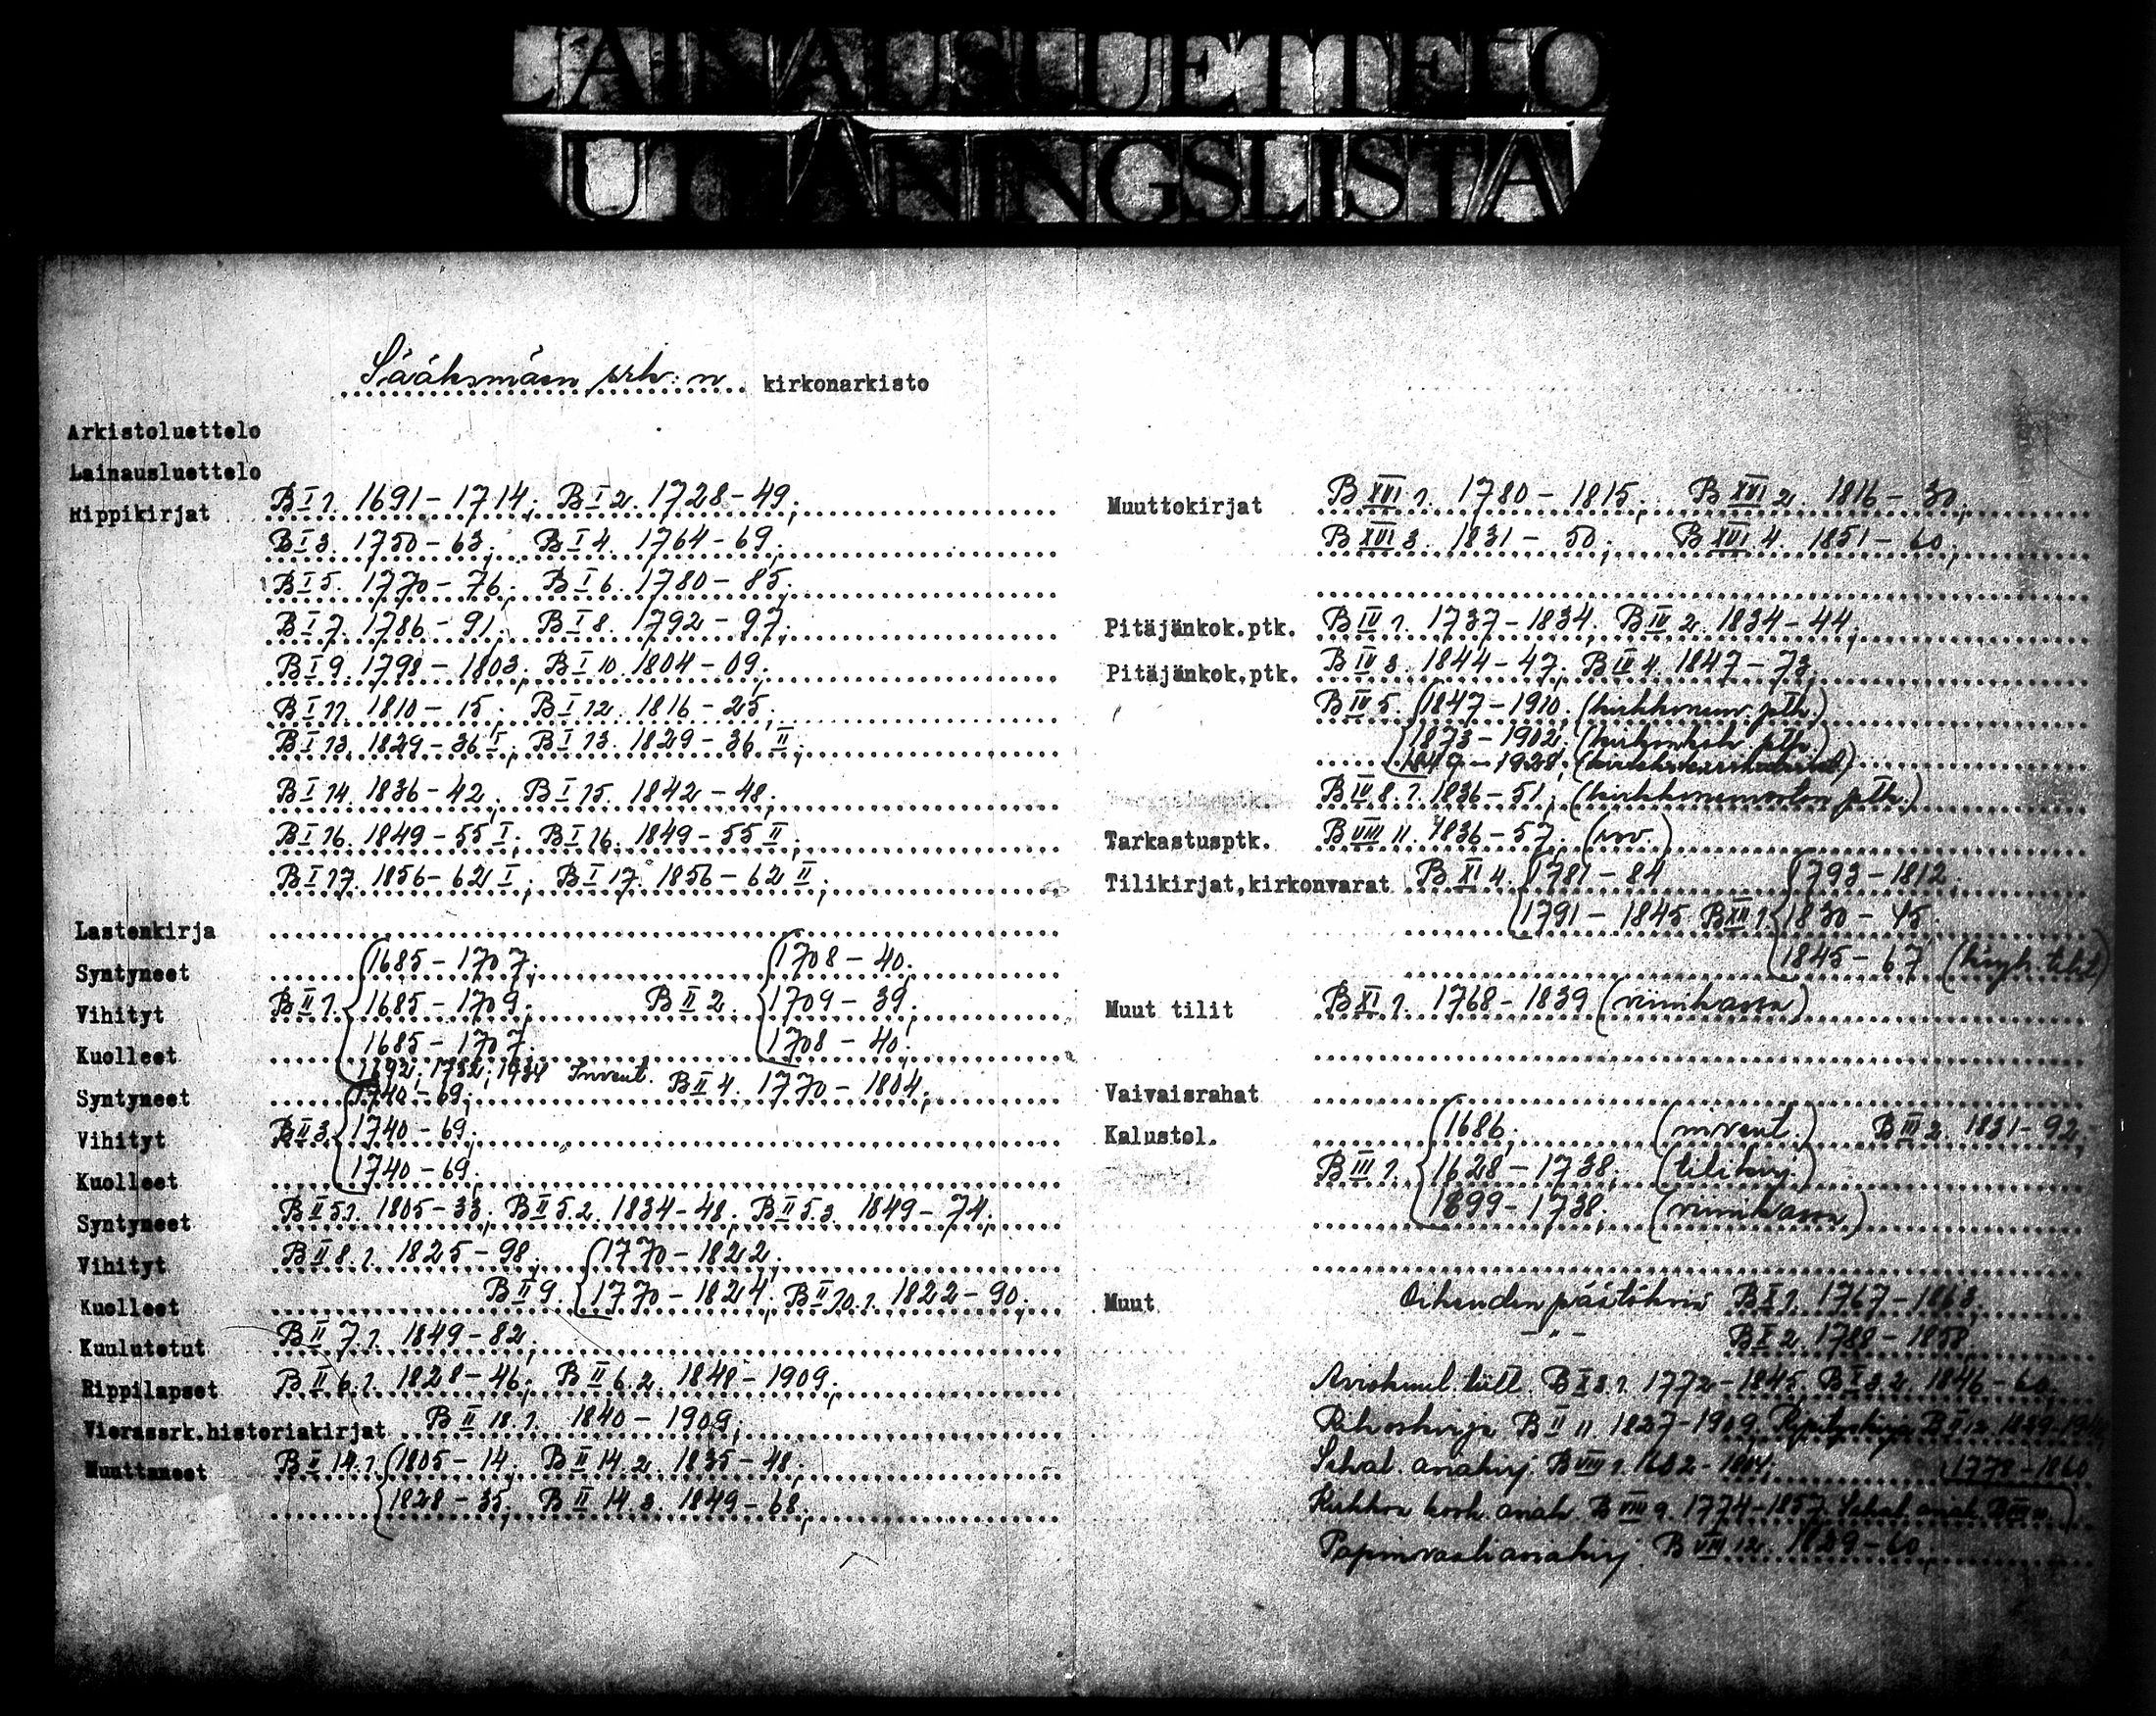 LAINAUSLUETTELO
UTLÅNINGSLISTA
Sääksmäen srk:n kirkonarkisto
Arkistoluettelo
Lainausluettelo
Rippikirjat B I 1. 1691-1714; B I 2. 1728-49;
B I 3. 1750-63; B I 4. 1764-69;
B I 5. 1770-76; B I 6. 1780-85;
B I 7. 1786-91; B I 8. 1792-97;
B I 9. 1798-1803; B I 10. 1804-09;
B I 11. 1810-15; B I 12. 1816-25;
B I 13. 1829-36 I; B I 13. 1829-36 II;
B I 14. 1836-42; B I 15. 1842-48;
B I 16. 1849-55 I; B I 16. 1849-55 II;
B I 17. 1856-62 I; B I 17. 1856-62 II;
Lastenkirja
Syntyneet 1685-1707; 1708-40;
Vihityt B II 1. 1685-1709; B II 2. 1709-39;
Kuolleet 1685-1707; 1708-40;
1692; 1732; 1734 Invent.
Syntyneet 1740-69; B II 4. 1770-1804;
Vihityt B II 3. 1740-69;
Kuolleet 1740-69;
Syntyneet B II 5.1. 1805-33; B II 5.2. 1834-48; B II 5.3. 1849-74;
Vihityt B II 8.1. 1825-98; 1770-1822;
Kuolleet B II 9. 1770-1824; B II 10.1. 1822-90;
Kuulutetut B II 7.1. 1849-82;
Rippilapset B II 6.1. 1828-46; B II 6.2. 1848-1909;
Vierassrk.historiakirjat B II 18.1. 1840-1909;
Muuttaneet B II 14.1. 1805-14; B II 14.2. 1835-48;
1828-35; B II 14.3. 1849-68;
Muuttokirjat B XVI 1. 1780-1815; B XVI 2. 1816-30;
B XVI 3. 1831-50; B XVI 4. 1851-60;
Pitäjänkok.ptk. B IV 1. 1737-1834; B IV 2. 1834-44;
Pitäjänkok.ptk. B IV 3. 1844-47; B IV 4. 1847-73;
B IV 5. 1847-1910; (kirkkoneuv. ptk.)
1873-1902; (kirkonkok. ptk.)
1849-1928;
B IV 8.1. 1836-51; (kirkkoneuvoston ptk.)
Tarkastusptk. B VIII 11. 1836-57; (rov.)
Tilikirjat,kirkonvarat B XI 4. 1781-84 1793-1812;
1791-1845 B XII 1. 1830-45;
1845-67
Muut tilit B XI 1. 1768-1839 (viinikassa)
Vaivaisrahat
Kalustol. 1686; (invent.) B III 2. 1831-92;
B III 1. 1628-1738; (tilikirj.)
1699-1738; (viinikassa)
Muut Oikeuden päätöksiä B X 1. 1767-1863;
-"- B X 2. 1788-1858;
Aviokuul. tiitt. B X 3.1. 1772-1845; B X 3.2. 1846-60;
Rikoskirja B II 11. 1827-1909;
Sekal. asiakirj. B VIII 1. 1682-1804; 1778-1860
Kirkkoa kosk. asiak. B VIII 9. 1774-1857; Sekal. asiak.
Papinvaaliasiakirj. B VIII 12. 1829-60;